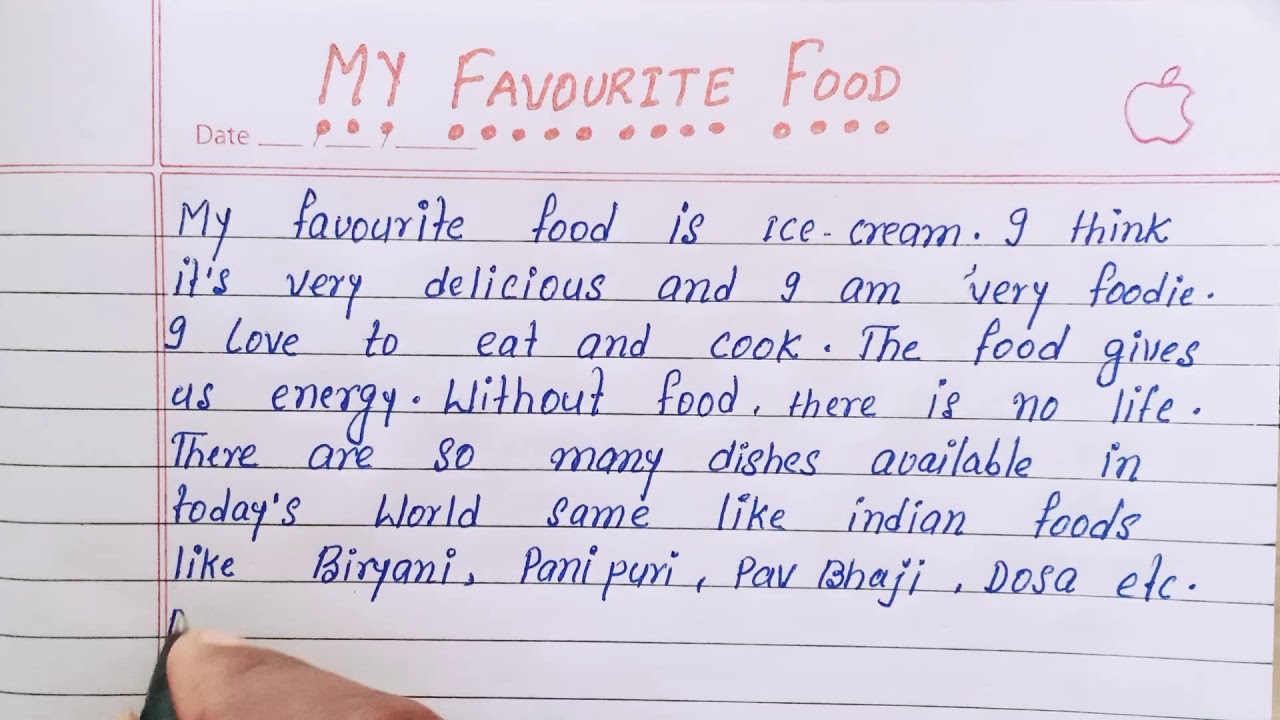 MY FAVOURITE FOOD
Date
My favourite food is ice-cream. I think
it's very delicious and I am very foodie.
I love to eat and cook. The food gives
us energy. Without food, there is no life.
There are so many dishes available in
today's World same like indian foods
like Biryani, Panipuri, Pav Bhaji, Dosa etc.